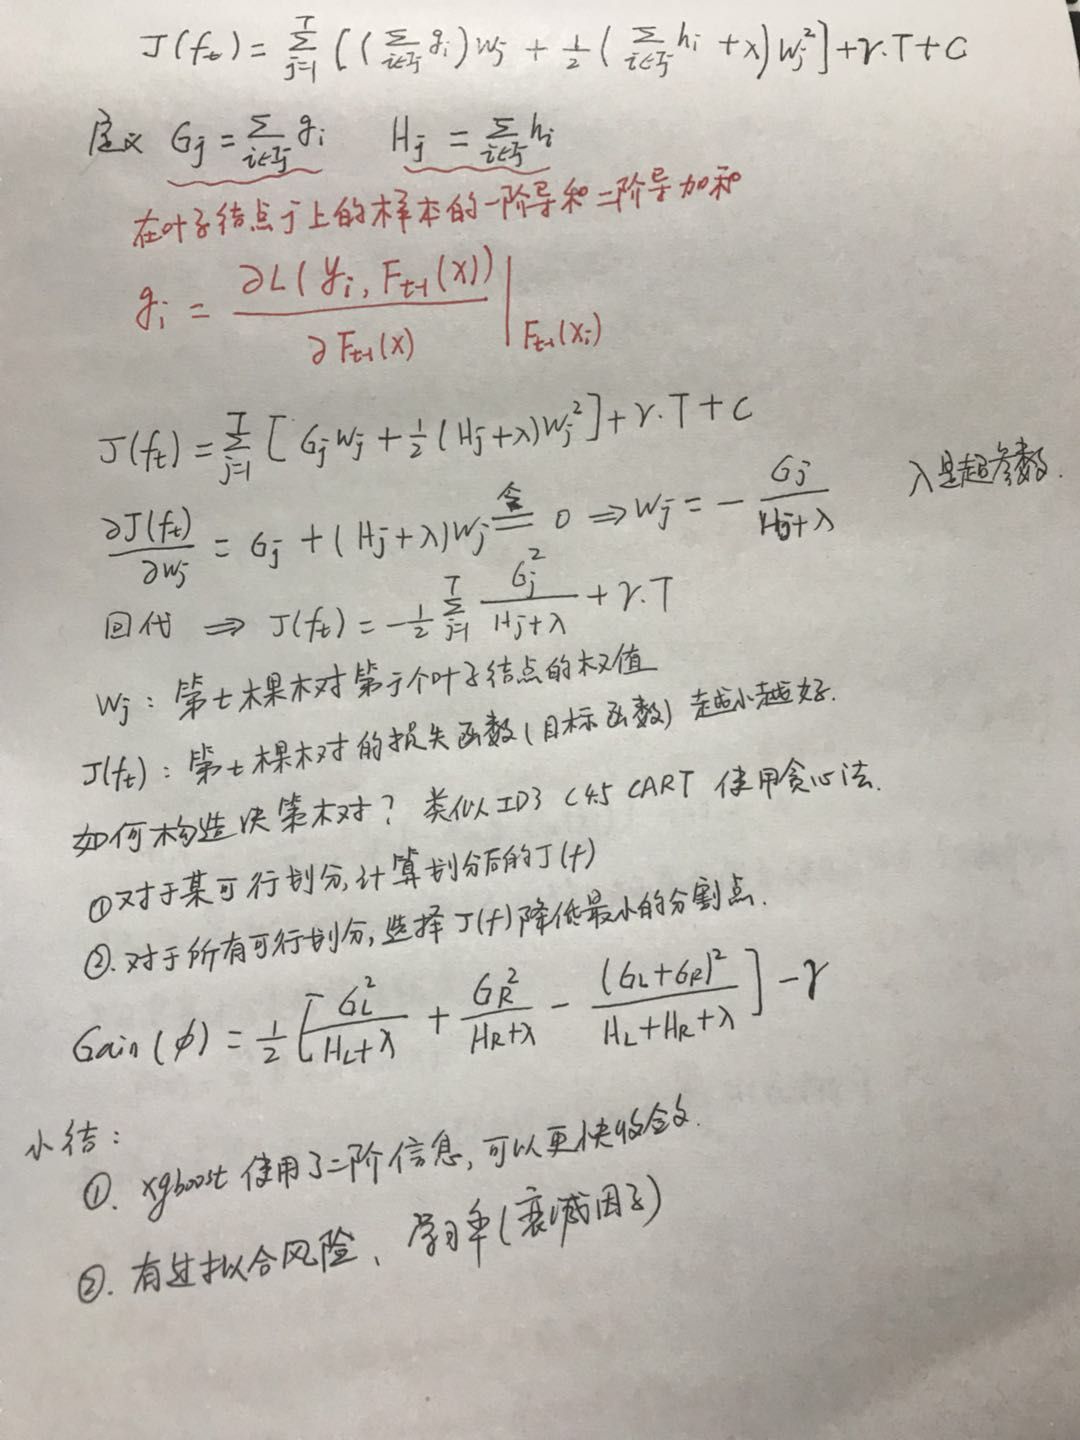 J(f_t) = Σ_{j=1}^{T} [(Σ_{i∈I_j} g_i) w_j + 1/2 (Σ_{i∈I_j} h_i + λ) w_j²] + γ·T + C
定义 G_j = Σ_{i∈I_j} g_i H_j = Σ_{i∈I_j} h_i
在叶子结点j上的样本的一阶导和二阶导加和
g_i = ∂L(y_i, F_{t-1}(x)) / ∂F_{t-1}(x) |_{F_{t-1}(x_i)}
J(f_t) = Σ_{j=1}^{T} [G_j w_j + 1/2 (H_j + λ) w_j²] + γ·T + C
∂J(f_t)/∂w_j = G_j + (H_j + λ) w_j 令= 0 ⇒ w_j = - G_j/(H_j + λ) λ是超参数.
回代 ⇒ J(f_t) = -1/2 Σ_{j=1}^{T} G_j²/(H_j + λ) + γ·T
w_j: 第t棵树第j个叶子结点的权值
J(f_t): 第t棵树的损失函数(目标函数) 越小越好.
如何构造决策树? 类似ID3 C4.5 CART 使用贪心法.
①对于某可行划分,计算划分后的J(f)
②.对于所有可行划分,选择J(f)降低最小的分割点.
Gain(φ) = 1/2 [G_L²/(H_L+λ) + G_R²/(H_R+λ) - (G_L+G_R)²/(H_L+H_R+λ)] - γ
小结:
①. xgboost使用了二阶信息,可以更快收敛.
②. 有过拟合风险、学习率(衰减因子)